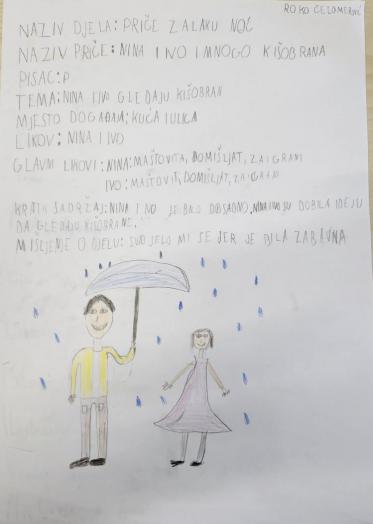 ROKO
NAZIV DJELA: PRIČE ZA LAKU NOĆ
NAZIV PRIČE: NINA I IVO I MNOGO KIŠOBRANA
PISAC: P
TEMA: NINA I IVO GLEDAJU KIŠOBRAN
MJESTO DOGAĐAJA: KUĆA I ULICA
LIKOVI: NINA I IVO
GLAVNI LIKOVI: NINA: MAŠTOVITA, DOMIŠLJAT, ZAIGRANI
IVO: MAŠTOVIT, DOMIŠLJAT, ZAIGRANI
KRATK SADRŽAJ: NINA I IVO JE BILO DOSADNO. NINA DOBILA IDEJU
DA GLEDAJU KIŠOBRANE.
MIŠLJENJE O DJELU: SVIDJELO MI SE JER JE BILA ZABAVNA